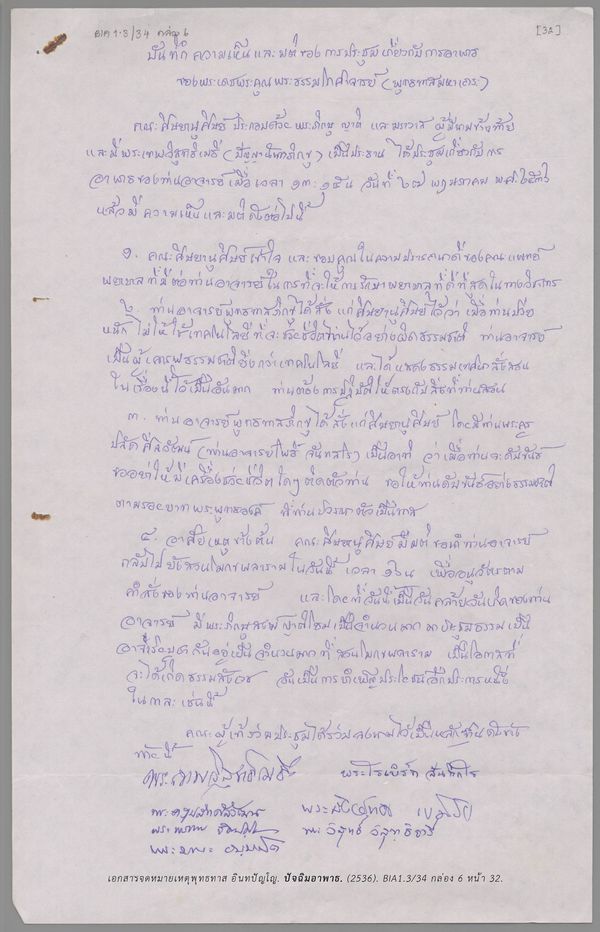 BIA 1.3/34 กล่อง 6
[32]
บันทึกความเห็นและมติของการประชุมเกี่ยวกับการอาพาธ
ของพระเดชพระคุณพระธรรมโกศาจารย์ (พุทธทาสมหาเถระ)
คณะศิษยานุศิษย์ ประกอบด้วย พระภิกษุ ญาติ และฆราวาส ผู้มีนามข้างท้าย
และมีพระเทพวิสุทธิเมธี (ปัญญานันทภิกขุ) เป็นประธาน ได้ประชุมเกี่ยวกับการ
อาพาธของท่านอาจารย์ เมื่อเวลา ๑๓.๑๕ น. วันที่ ๒๗ พฤษภาคม พ.ศ. ๒๕๓๖
แล้วมีความเห็นและมติดังต่อไปนี้
๑. คณะศิษยานุศิษย์เข้าใจ และขอบคุณในความปรารถนาดีของคณะแพทย์
พยาบาลที่มีต่อท่านอาจารย์ ในการที่จะให้การรักษาพยาบาลที่ดีที่สุดในทางวิชาการ
๒. ท่านอาจารย์พุทธทาสภิกขุได้สั่งแก่ศิษยานุศิษย์ไว้ว่า เมื่อท่านป่วย
หนัก ไม่ให้ใช้เทคโนโลยีที่จะช่วยชีวิตท่านไว้อย่างผิดธรรมชาติ ท่านอาจารย์
เป็นผู้เคารพธรรมชาติยิ่งกว่าเทคโนโลยี และได้แสดงธรรมเทศนาสั่งสอน
ในเรื่องนี้ไว้เป็นอันมาก ท่านต้องการปฏิบัติให้ตรงกับสิ่งที่ท่านสอน
๓. ท่านอาจารย์พุทธทาสภิกขุได้สั่งแก่ศิษยานุศิษย์ โดยมีท่านพระครู
ปลัดศีลวัฒน์ (ท่านอาจารย์โพธิ์ จันทสโร) เป็นอาทิ ว่าเมื่อท่านจะดับขันธ์
ขออย่าให้มีเครื่องช่วยชีวิตใดๆ ติดตัวท่าน ขอให้ท่านดับขันธ์อย่างธรรมชาติ
ตามรอยบาทพระพุทธองค์ ที่ท่านปวารณาตัวเป็นทาส
๔. อาศัยเหตุข้างต้น คณะศิษยานุศิษย์มีมติขอนำท่านอาจารย์
กลับไปยังสวนโมกขพลารามในวันนี้ เวลา ๑๖ น. เพื่ออนุวัติตาม
คำสั่งของท่านอาจารย์ และโดยที่วันนี้เป็นวันคล้ายวันเกิดของท่าน
อาจารย์ มีพระภิกษุสงฆ์ ญาติโยมเป็นจำนวนมาก มาประชุมธรรมเป็น
อาจริยบูชากันอยู่เป็นจำนวนมากที่สวนโมกขพลาราม เป็นโอกาสที่
จะได้เกิดธรรมสังเวช อันเป็นการบำเพ็ญประโยชน์อีกประการหนึ่ง
ในกาละเช่นนี้
คณะผู้เข้าร่วมประชุมได้ร่วมลงนามไว้เป็นหลักฐานดังข้าง
ท้ายนี้
พระโรเบิร์ต สันติกโร
เอกสารจดหมายเหตุพุทธทาส อินทปัญโญ. ปัจฉิมอาพาธ. (2536). BIA1.3/34 กล่อง 6 หน้า 32.